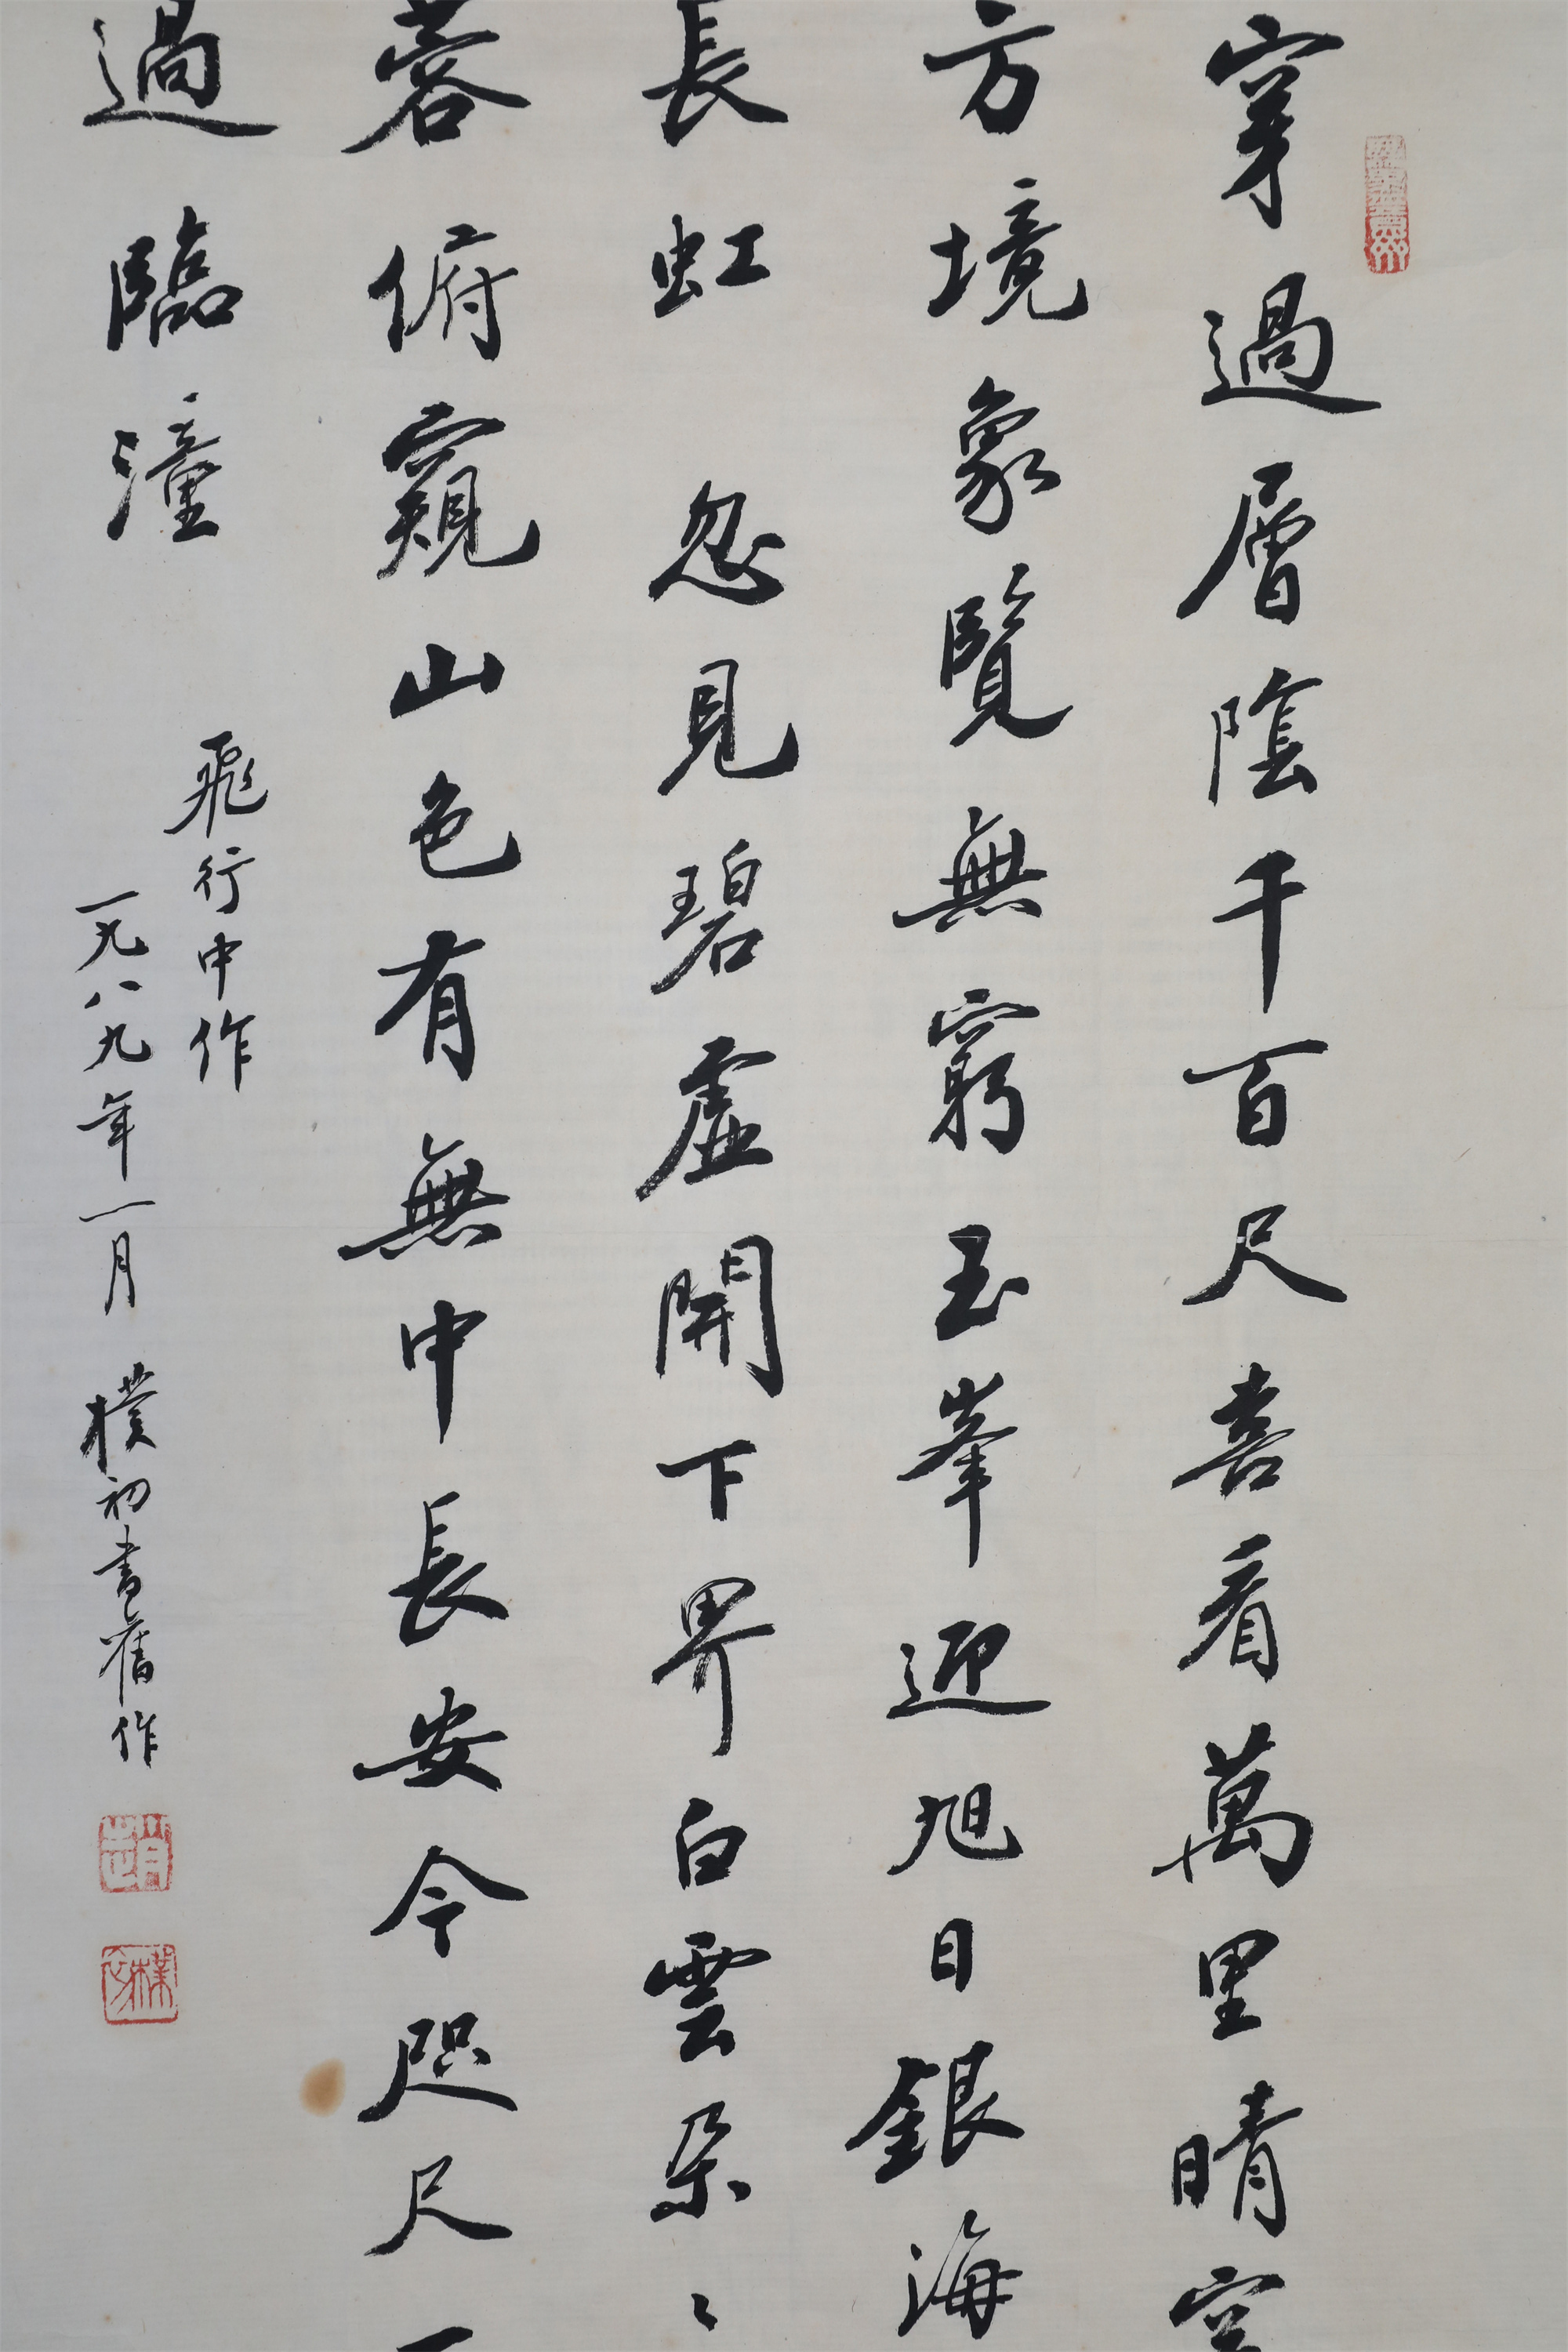 穿過層陰千百尺喜看萬里晴空
方境象覽無窮玉峯迎旭日銀海
長虹 忽見碧虛開下界白雲朵〻
蓉俯窺山色有無中長安今咫尺一
過臨潼
飛行中作
一九八九年一月 樸初書舊作
趙
樸初